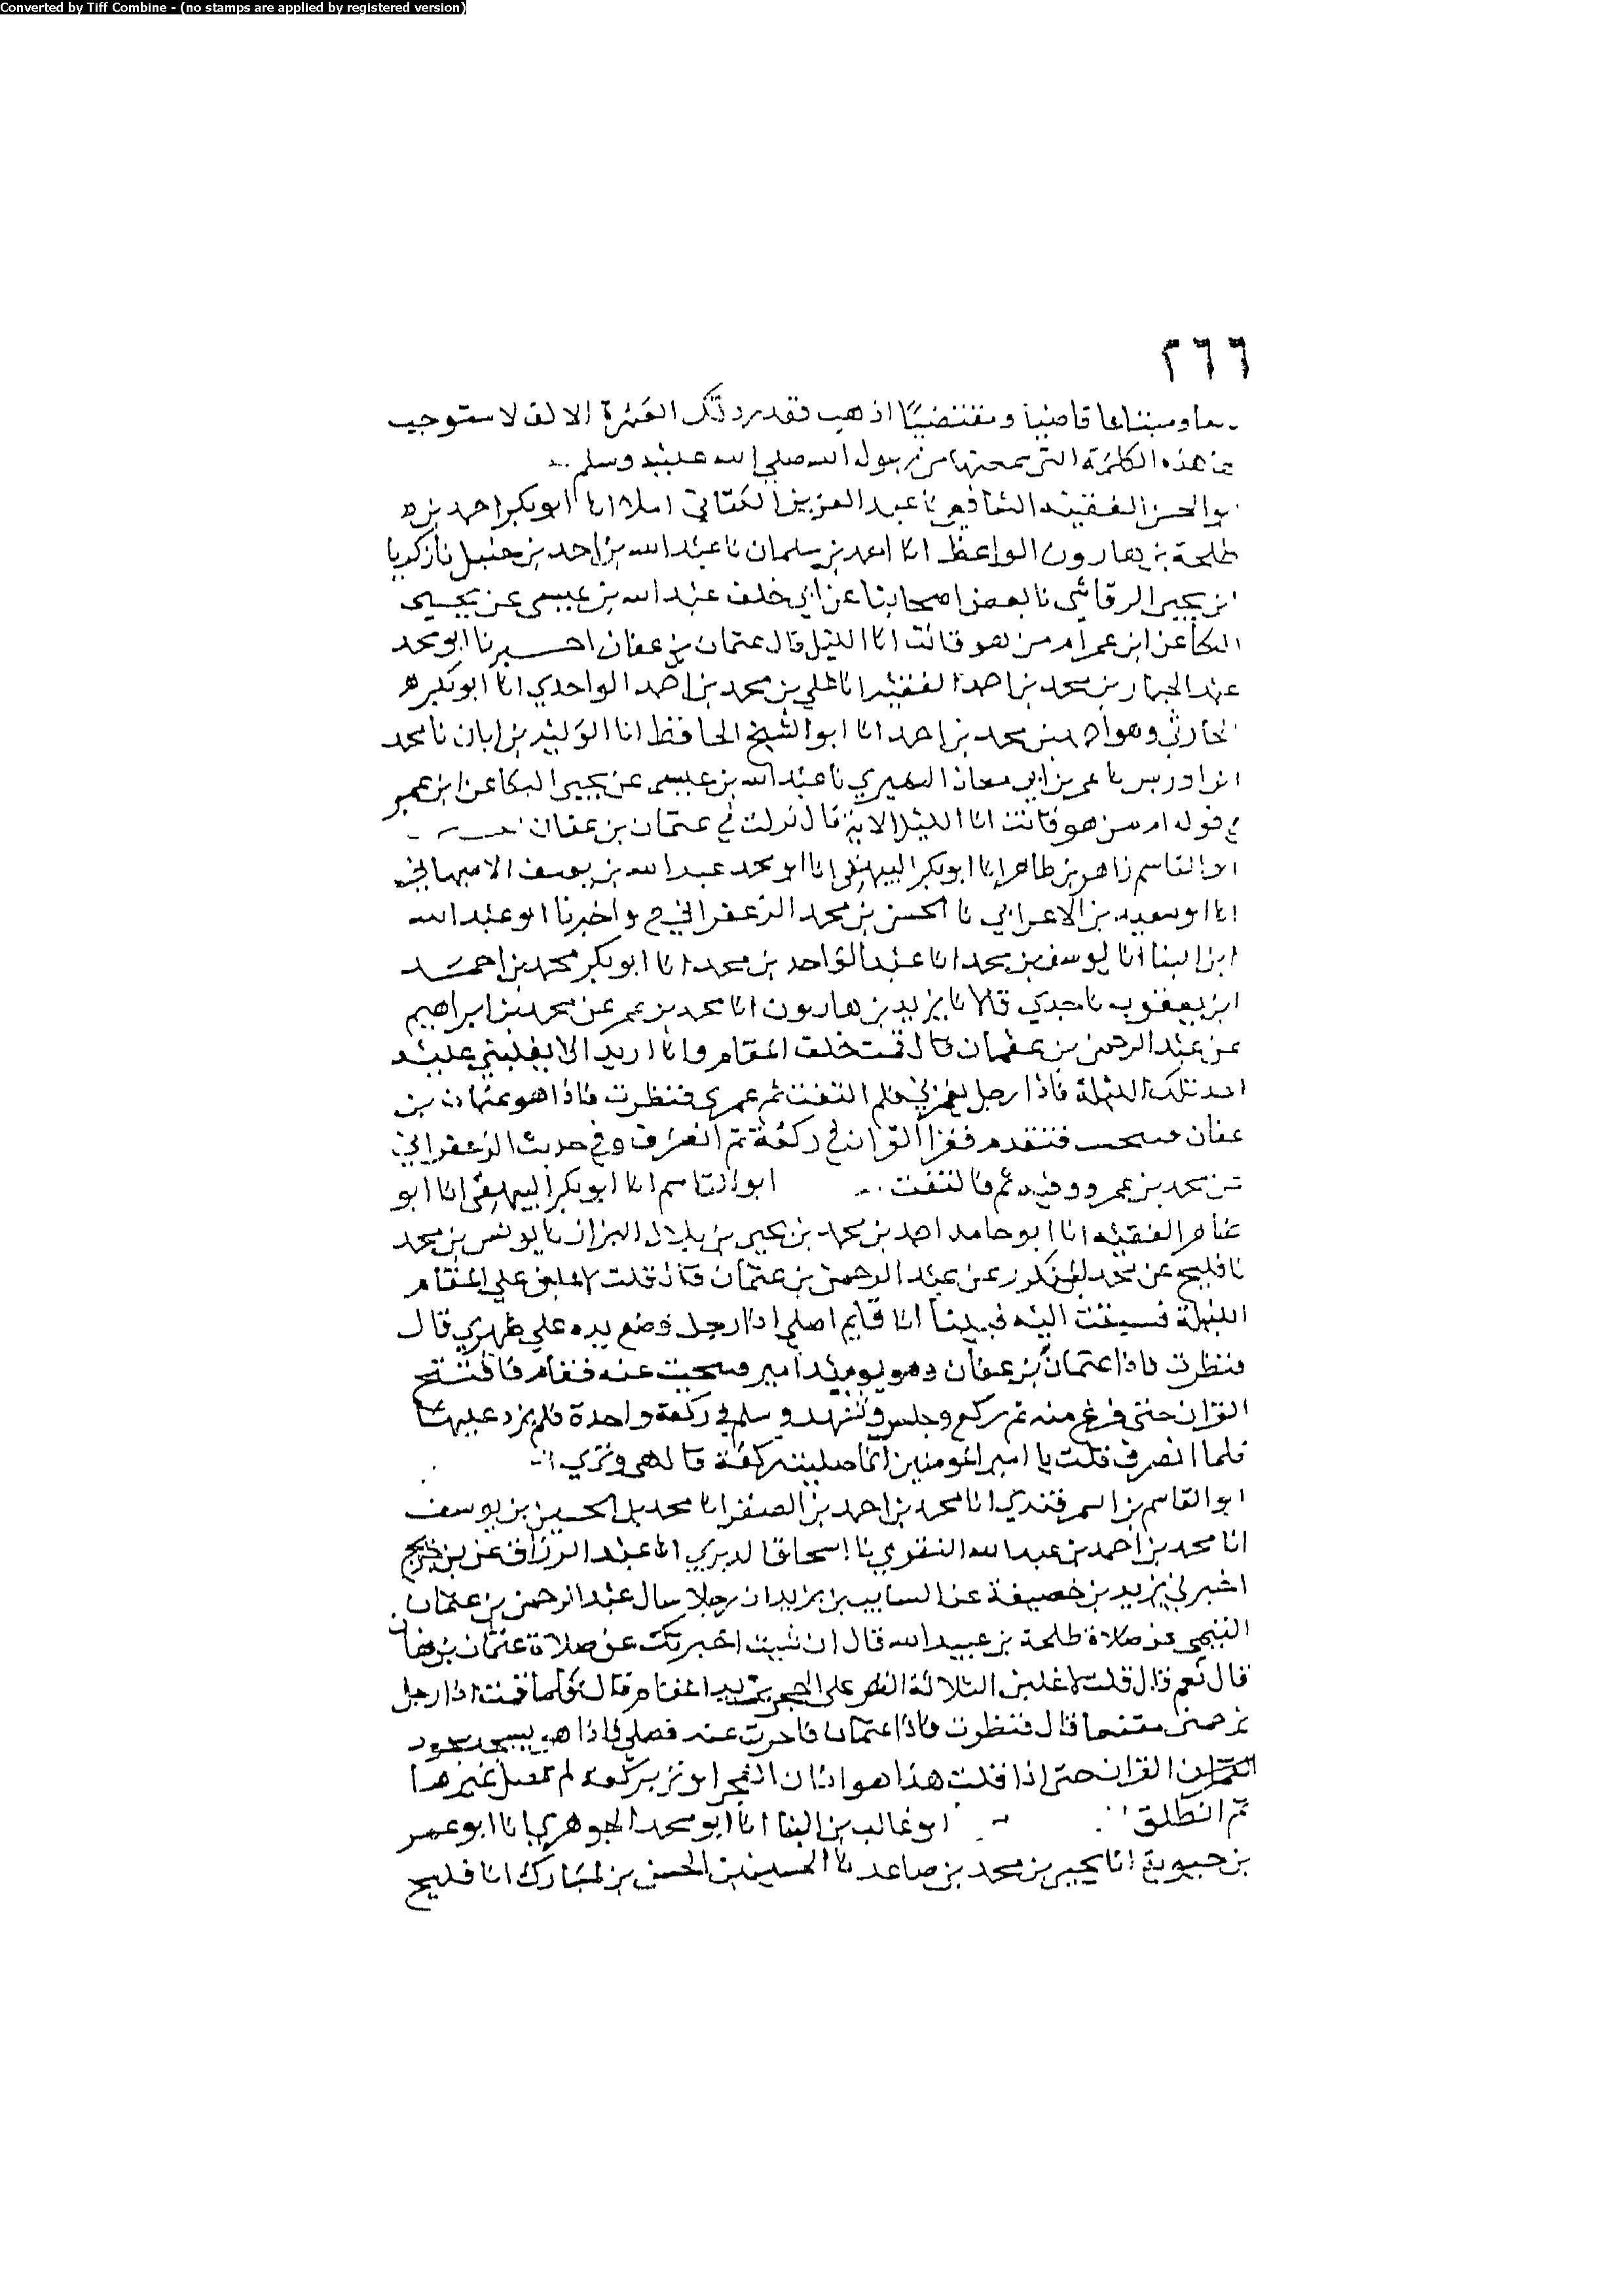 Converted by Tiff Combine - (no stamps are applied by registered version)
٢٦٦
ومبتاعا قاضيا ومقتضيا اذهب فقد رددتك العشرة الالف لاستوجب
هذه الكلمة التي سمعتها من رسول الله صلى الله عليه وسلم
ابو الحسن الفقيه الشافعي نا عبد العزيز الكتاني املاء انا ابو بكر احمد بن
طلحة بن هارون الواعظ انا احمد بن سلمان نا عبد الله بن احمد بن حنبل نا زكريا
بن يحيى الرقاشي نا بعض اصحابنا عن ابي خلف عبد الله بن عيسى عن يحيى
البكا عن ابن عمر ام من هو قانت انا الليل قال عثمان بن عفان اخبرنا ابو محمد
عبد الجبار بن محمد بن احمد الفقيه انا علي بن محمد بن احمد الواحدي انا ابو بكر
الحارثي وهو احمد بن محمد بن احمد انا ابو الشيخ الحافظ انا الوليد بن ابان نا محمد
ابن ادريس نا عمر بن ابي معاذ النميري نا عبد الله بن عيسى عن يحيى البكا عن ابن عمر
في قوله ام من هو قانت انا الليل الاية قال نزلت في عثمان بن عفان
ابو القاسم زاهر بن طاهر انا ابو بكر البيهقي انا ابو محمد عبد الله بن يوسف الاصبهاني
انا ابو سعيد بن الاعرابي نا الحسن بن محمد الزعفراني ح واخبرنا ابو عبد الله
ابن البنا انا يوسف بن محمد انا عبد الواحد بن محمد انا ابو بكر محمد بن احمد
ابن يعقوب نا جدي قالا نا يزيد بن هارون انا محمد بن عمر عن محمد بن ابراهيم
عن عبد الرحمن بن عثمان قال قمت خلف المقام وانا اريد الا يغلبني عليه
احد تلك الليلة فاذا رجل يغمزني فلم التفت ثم غمزني فنظرت فاذا هو عثمان بن
عفان فتقدم فقرأ القران في ركعة ثم انصرف وفي حديث الزعفراني
عن محمد بن عمرو وفيه ثم فالتفت ابو القاسم انا ابو بكر البيهقي انا ابو
طاهر الفقيه انا ابو حامد احمد بن محمد بن يحيى بن بلال البزاز نا يونس بن محمد
نا فليح عن محمد بن المنكدر عن عبد الرحمن بن عثمان قال قلت لاغلبن على المقام
الليلة فسبقت اليه فبينا انا قايم اصلي اذا رجل وضع يده علي ظهري قال
فنظرت فاذا عثمان بن عفان وهو يوميذ امير فتنحيت عنه فقام فافتتح
القران حتى فرغ منه ثم ركع وجلس وتشهد وسلم في ركعة واحدة فلم يزد عليها
فلما انصرف قلت يا امير المومنين انما صليت ركعة قال هي وتري
ابو القاسم بن السمرقندي انا محمد بن احمد بن الصقر انا محمد بن الحسين بن يوسف
انا محمد بن احمد بن عبد الله النقوي نا اسحاق الدبري انا عبد الرزاق عن بن جريج
اخبرني يزيد بن خصيفة عن السايب بن يزيد ان رجلا سال عبد الرحمن بن عثمان
التيمي عن صلاة طلحة بن عبيد الله قال ان شيت اخبرتك عن صلاة عثمان بن عفان
قال نعم قال قلت لاغلبن الثلاثة النفر على الحجر يريد المقام قال فلما قمت اذا رجل
يزحمني متقنعا قال فنظرت فاذا عثمان فاخرت عنه فصلى فاذا هو يسجد سجود
القران حتى اذا قلت هذا هو اذان الفجر اوتر بركعة لم يصل غيرها
ثم انطلق ابو غالب بن البنا انا ابو محمد الجوهري انا ابو عمر
بن حيوية انا يحيى بن محمد بن صاعد نا الحسين بن الحسن بن المبارك انا فليح